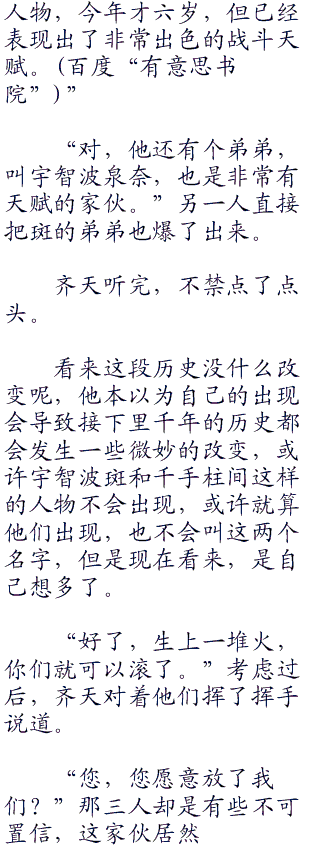 人物，今年才六岁，但已经
表现出了非常出色的战斗天
赋。(百度“有意思书
院”)”
“对，他还有个弟弟，
叫宇智波泉奈，也是非常有
天赋的家伙。”另一人直接
把斑的弟弟也爆了出来。
齐天听完，不禁点了点
头。
看来这段历史没什么改
变呢，他本以为自己的出现
会导致接下里千年的历史都
会发生一些微妙的改变，或
许宇智波斑和千手柱间这样
的人物不会出现，或许就算
他们出现，也不会叫这两个
名字，但是现在看来，是自
己想多了。
“好了，生上一堆火，
你们就可以滚了。”考虑过
后，齐天对着他们挥了挥手
说道。
“您，您愿意放了我
们？”那三人却是有些不可
置信，这家伙居然